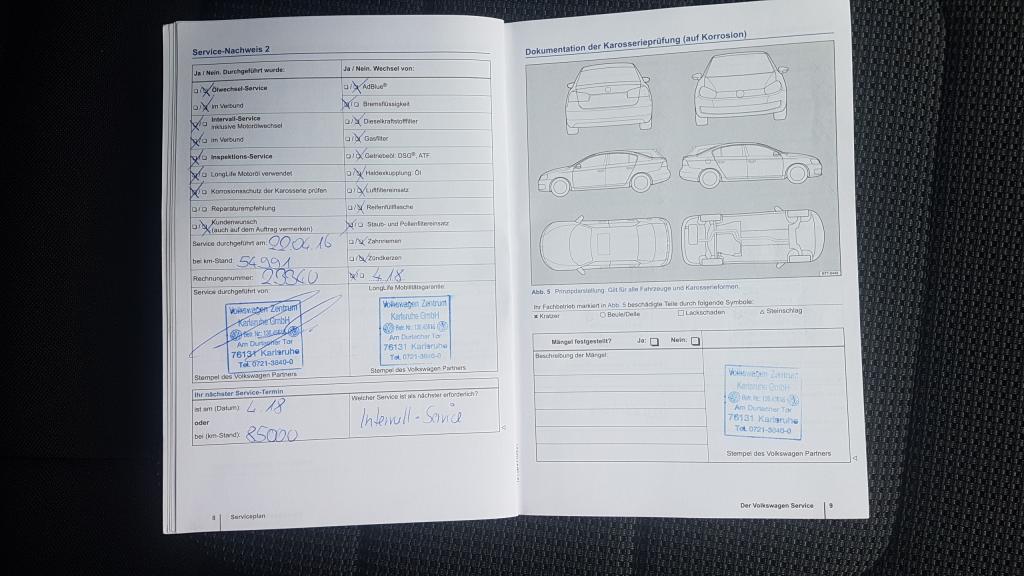 Service-Nachweis 2
Ja / Nein. Durchgeführt wurde:
Ölwechsel-Service
im Verbund
Intervall-Service
inklusive Motorölwechsel
im Verbund
Inspektions-Service
LongLife Motoröl verwendet
Korrosionsschutz der Karosserie prüfen
Reparaturempfehlung
Kundenwunsch
(auch auf dem Auftrag vermerken)
Service durchgeführt am:
bei km-Stand: 54991
Rechnungsnummer:
Service durchgeführt von:
Volkswagen Zentrum
Karlsruhe GmbH
Am Durlacher Tor
76131 Karlsruhe
Tel. 0721-3840-0
Stempel des Volkswagen Partners
Ja / Nein. Wechsel von:
AdBlue®
Bremsflüssigkeit
Dieselkraftstofffilter
Gasfilter
Getriebeöl: DSG®, ATF
Haldexkupplung: Öl
Luftfiltereinsatz
Reifenfüllflasche
Staub- und Pollenfiltereinsatz
Zahnriemen
Zündkerzen
4.18
LongLife Mobilitätsgarantie:
Volkswagen Zentrum
Karlsruhe GmbH
Am Durlacher Tor
76131 Karlsruhe
Tel. 0721-3840-0
Stempel des Volkswagen Partners
Ihr nächster Service-Termin
ist am (Datum): 4.18
oder
bei (km-Stand): 85000
Welcher Service ist als nächster erforderlich?
8 Serviceplan
Dokumentation der Karosserieprüfung (auf Korrosion)
Abb. 5 Prinzipdarstellung: Gilt für alle Fahrzeuge und Karosserieformen.
Ihr Fachbetrieb markiert in Abb. 5 beschädigte Teile durch folgende Symbole:
Kratzer Beule/Delle Lackschaden Steinschlag
Mängel festgestellt? Ja: Nein:
Beschreibung der Mängel:
Volkswagen Zentrum
Karlsruhe GmbH
Am Durlacher Tor
76131 Karlsruhe
Tel. 0721-3840-0
Stempel des Volkswagen Partners
Der Volkswagen Service 9